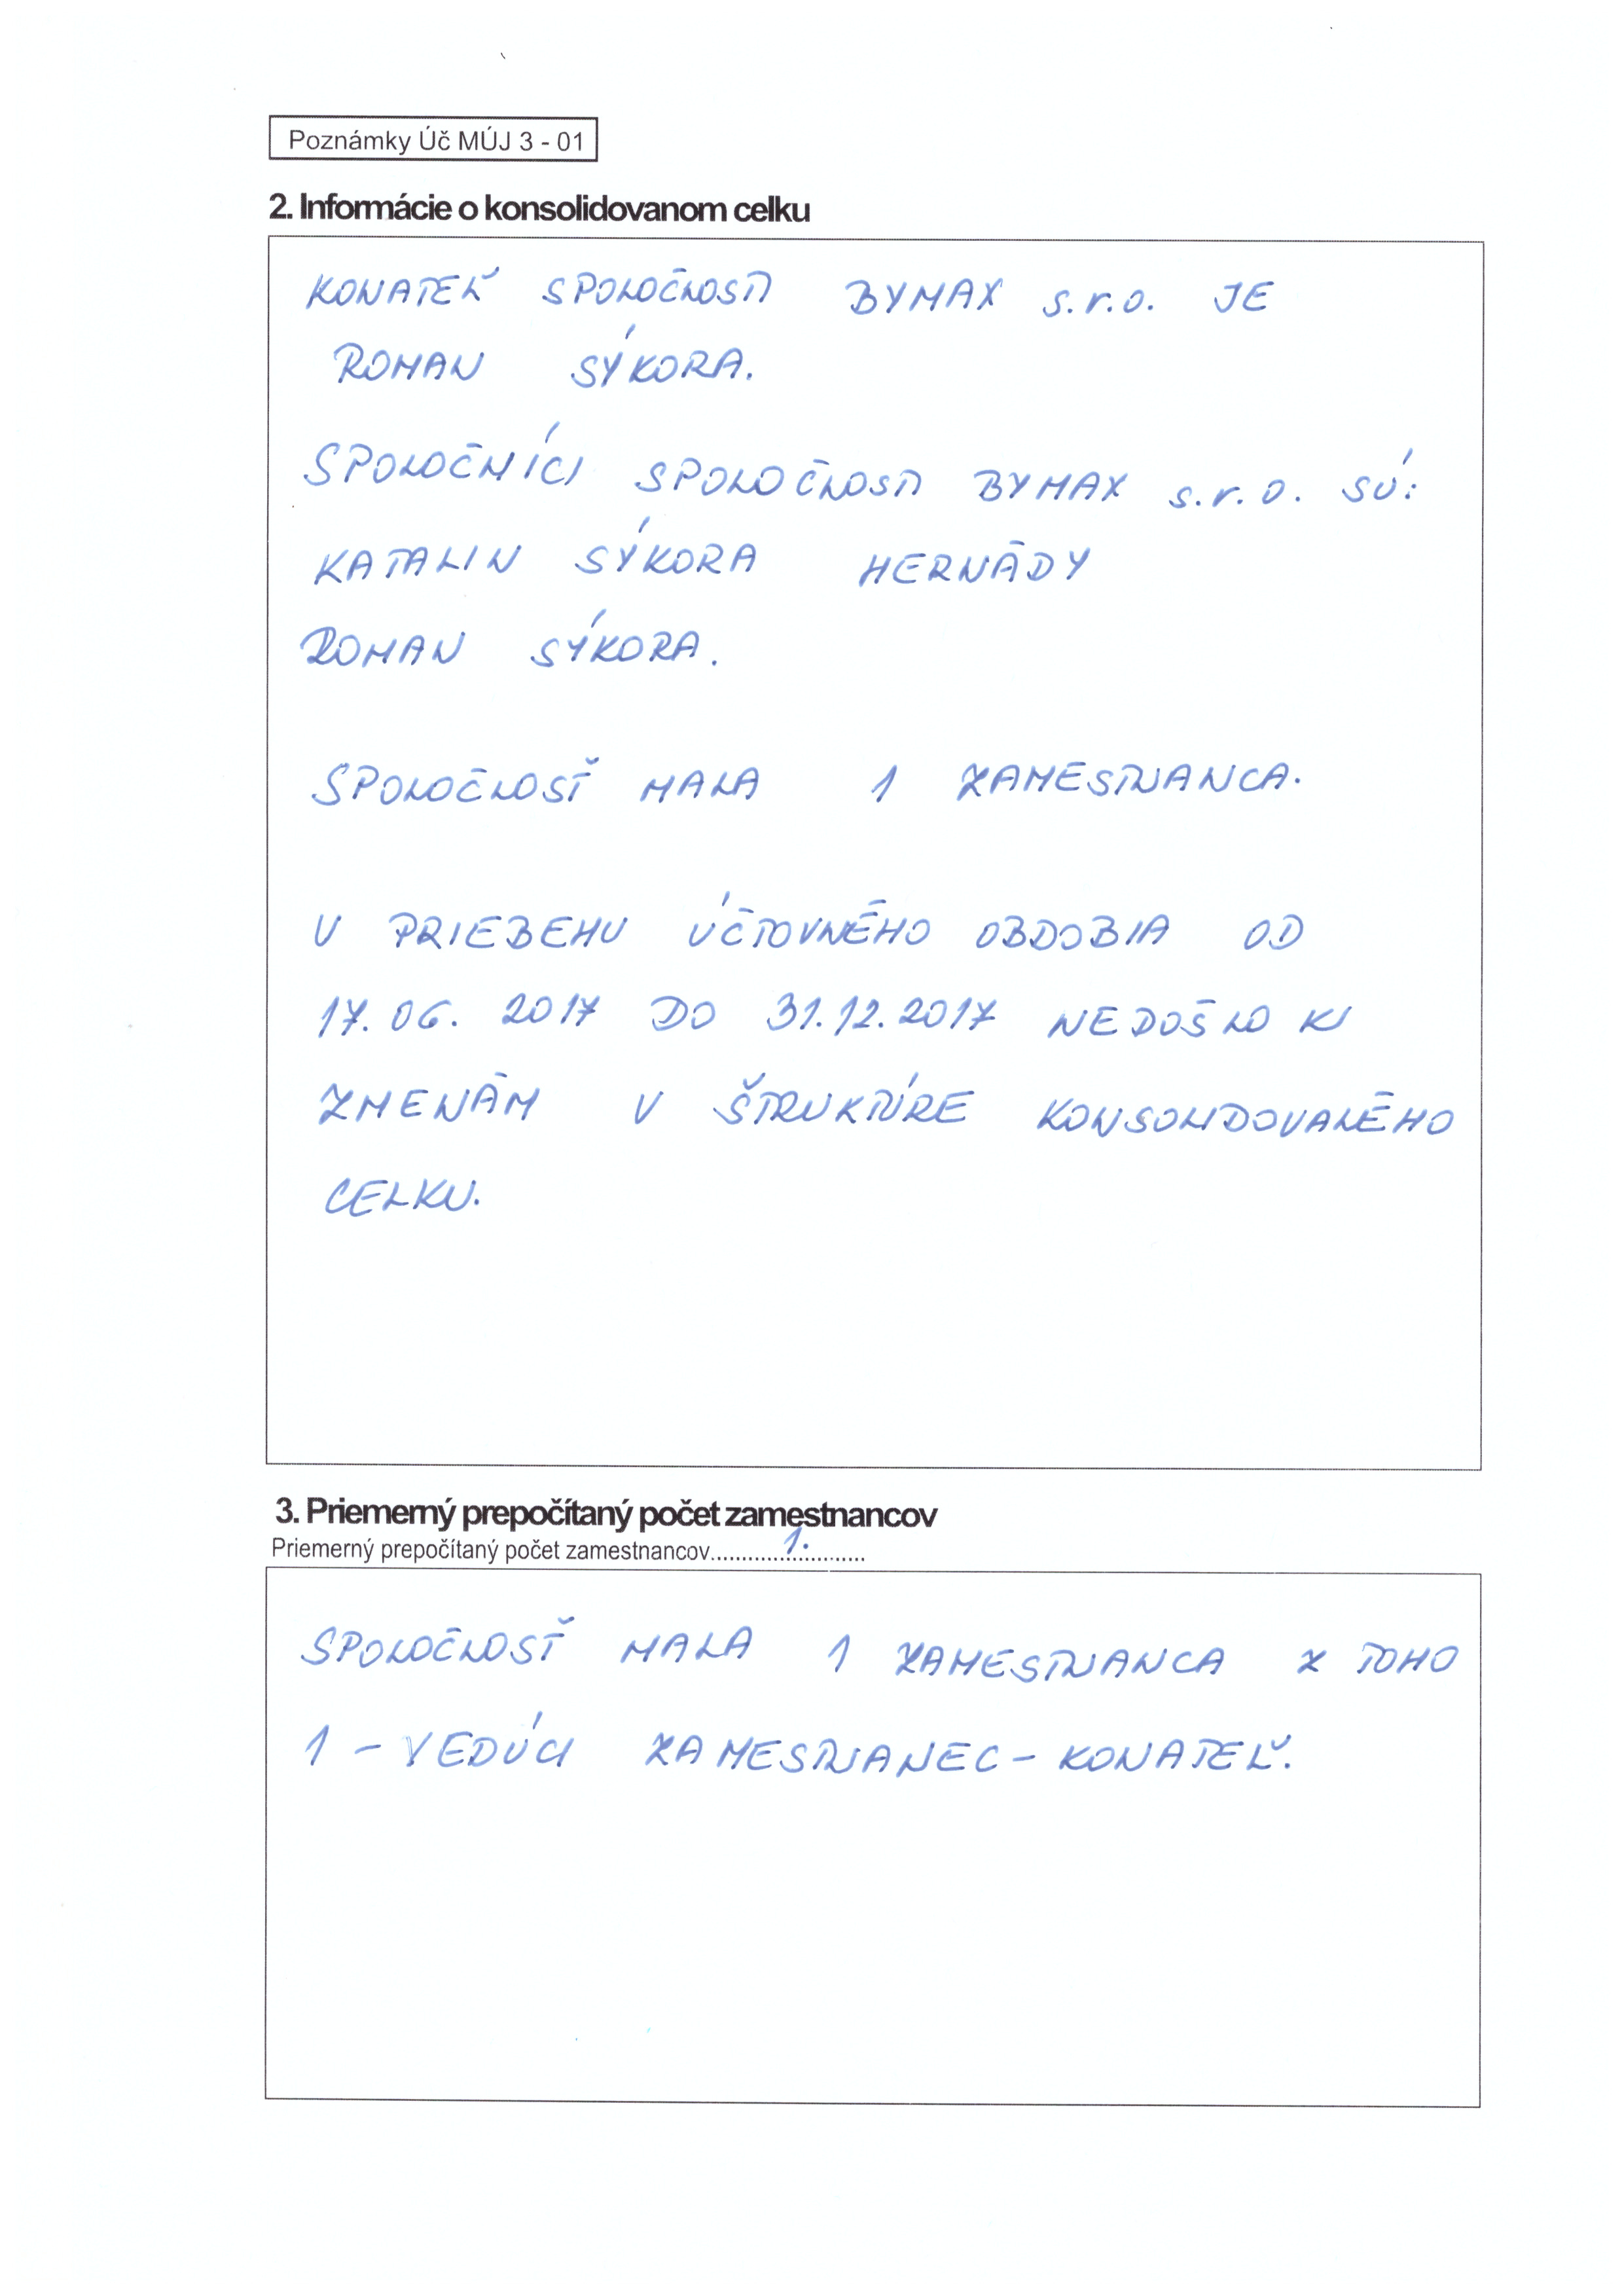 Poznámky Úč MÚJ 3 - 01
2. Informácie o konsolidovanom celku
KONATEĽ SPOLOČNOSTI BYMAX s.r.o. JE
ROMAN SÝKORA.
SPOLOČNÍCI SPOLOČNOSTI BYMAX s.r.o. SÚ:
KATALIN SÝKORA HERNÁDY
ROMAN SÝKORA.
SPOLOČNOSŤ MALA 1 ZAMESTNANCA.
V PRIEBEHU ÚČTOVNÉHO OBDOBIA OD
17.06. 2017 DO 31.12.2017 NEDOŠLO KU
ZMENÁM V ŠTRUKTÚRE KONSOLIDOVANÉHO
CELKU.
3. Priemerný prepočítaný počet zamestnancov
Priemerný prepočítaný počet zamestnancov...........1...........
SPOLOČNOSŤ MALA 1 ZAMESTNANCA Z TOHO
1 - VEDÚCI ZAMESTNANEC - KONATEĽ.